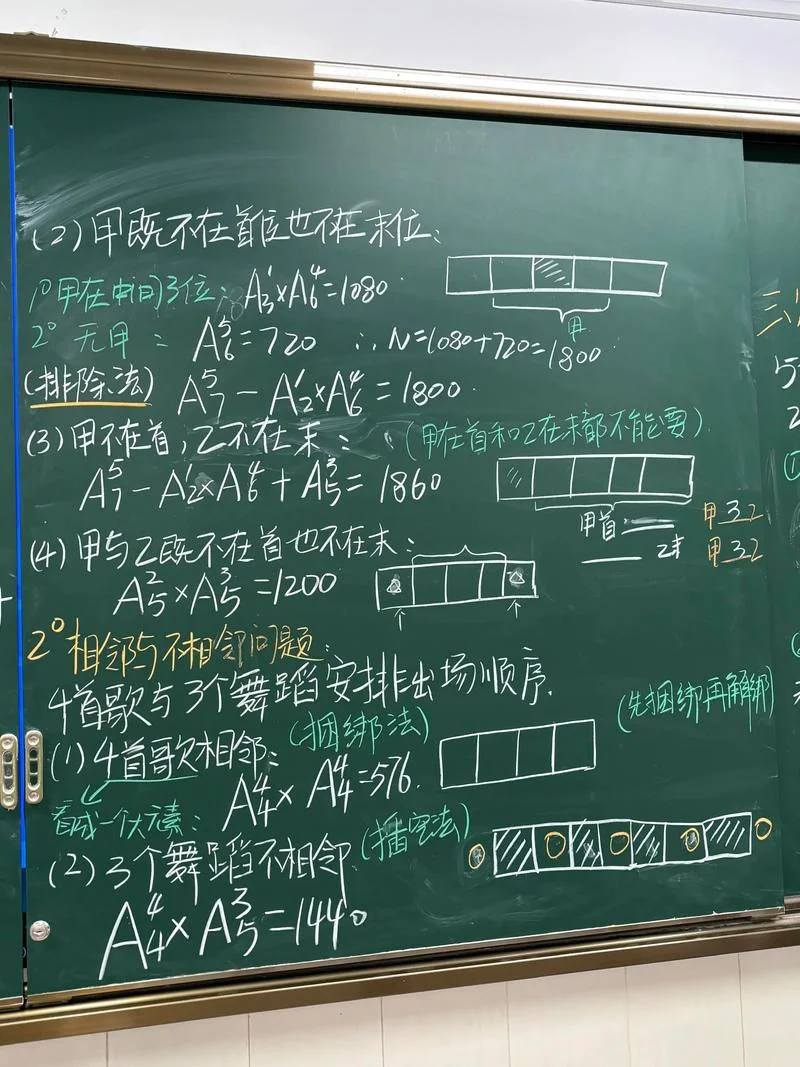 (2)甲既不在首位也不在末位:
1°甲在中间3位: A₃¹×A₆⁴=1080
甲
2° 无甲: A₆⁵=720 ∴N=1080+720=1800
(排除法) A₇⁵-A₂¹×A₆⁴=1800
(3)甲不在首,乙不在末: (甲在首和乙在末都不能要)
A₇⁵-A₂¹×A₆⁴+A₅³=1860
甲首
乙末
甲32
甲32
(4)甲与乙既不在首也不在末:
A₅²×A₅³=1200
2°相邻与不相邻问题:
4首歌与3个舞蹈安排出场顺序.
(1)4首歌相邻: (捆绑法) (先捆绑再解绑)
看成一个大元素: A₄⁴×A₄⁴=576.
(2)3个舞蹈不相邻 (插空法)
A₄⁴×A₅³=1440
三
5
2
①